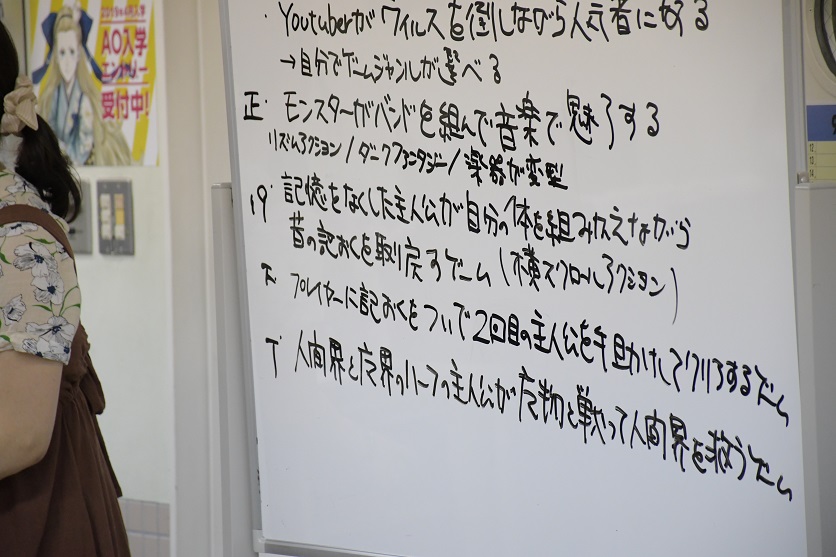 2019年4月入学
AO入学
エントリー
受付中!
Youtuberがウィルスを倒しながら人気者になる
→自分でゲームジャンルが選べる
正 モンスターがバンドを組んで音楽で魅了する
リズムアクション/ダークファンタジー/楽器が変型
記憶をなくした主人公が自分の体を組みかえながら
昔の記おくを取り戻すゲーム(横スクロールアクション)
下 プレイヤーに記おくをついで2回目の主人公を手助けしてクリアするゲーム
T 人間界と魔界のハーフの主人公が魔物と戦って人間界を救うゲーム